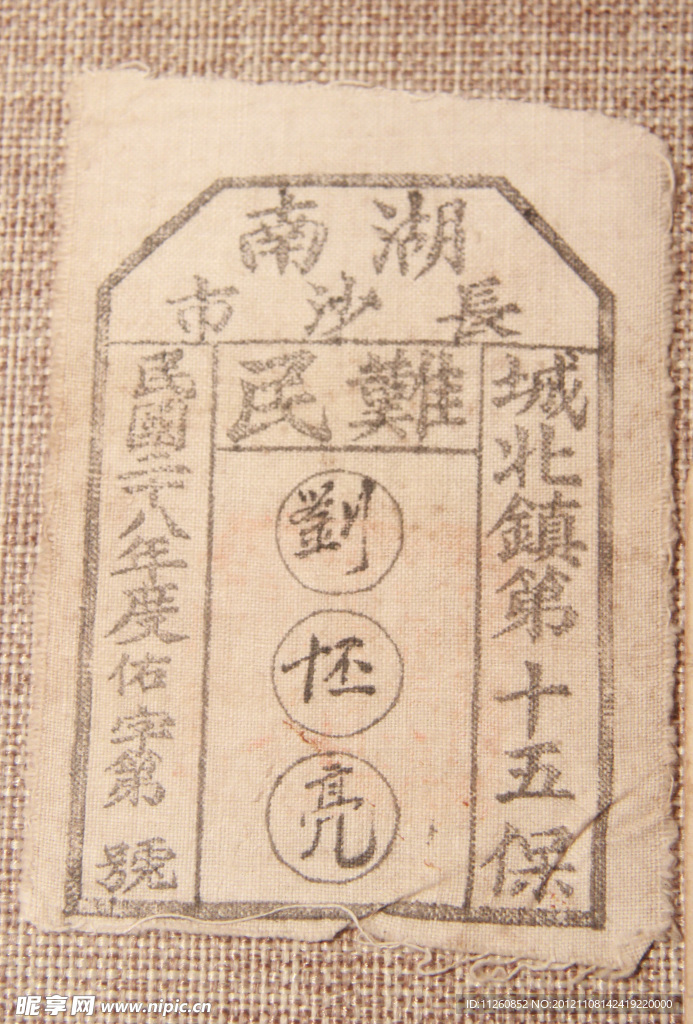 湖南
長沙市
城北鎮第十五保
難民
劉
亮
民國二十八年度佑字第 號
昵享网 www.nipic.cn
ID:11260852 NO:20121108142419220000